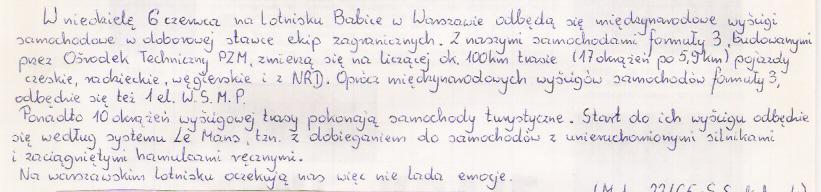 W niedzielę 6 czerwca na Lotnisku Babice w Warszawie odbędą się międzynarodowe wyścigi
samochodowe w doborowej stawce ekip zagranicznych. Z naszymi samochodami formuły 3, budowanymi
przez Ośrodek Techniczny PZM, zmierzą się na liczącej ok. 100km trasie (17 okrążeń po 5,9km) pojazdy
czeskie, radzieckie, węgierskie i z NRD. Oprócz międzynarodowych wyścigów samochodów formuły 3,
odbędzie się też 1 el. W.S.M.P.
Ponadto 10 okrążeń wyścigowej trasy pokonają samochody turystyczne. Start do ich wyścigu odbędzie
się według systemu Le Mans, tzn. z dobieganiem do samochodów z unieruchomionymi silnikami
i zaciągniętymi hamulcami ręcznymi.
Na warszawskim lotnisku oczekują nas więc nie lada emocje.